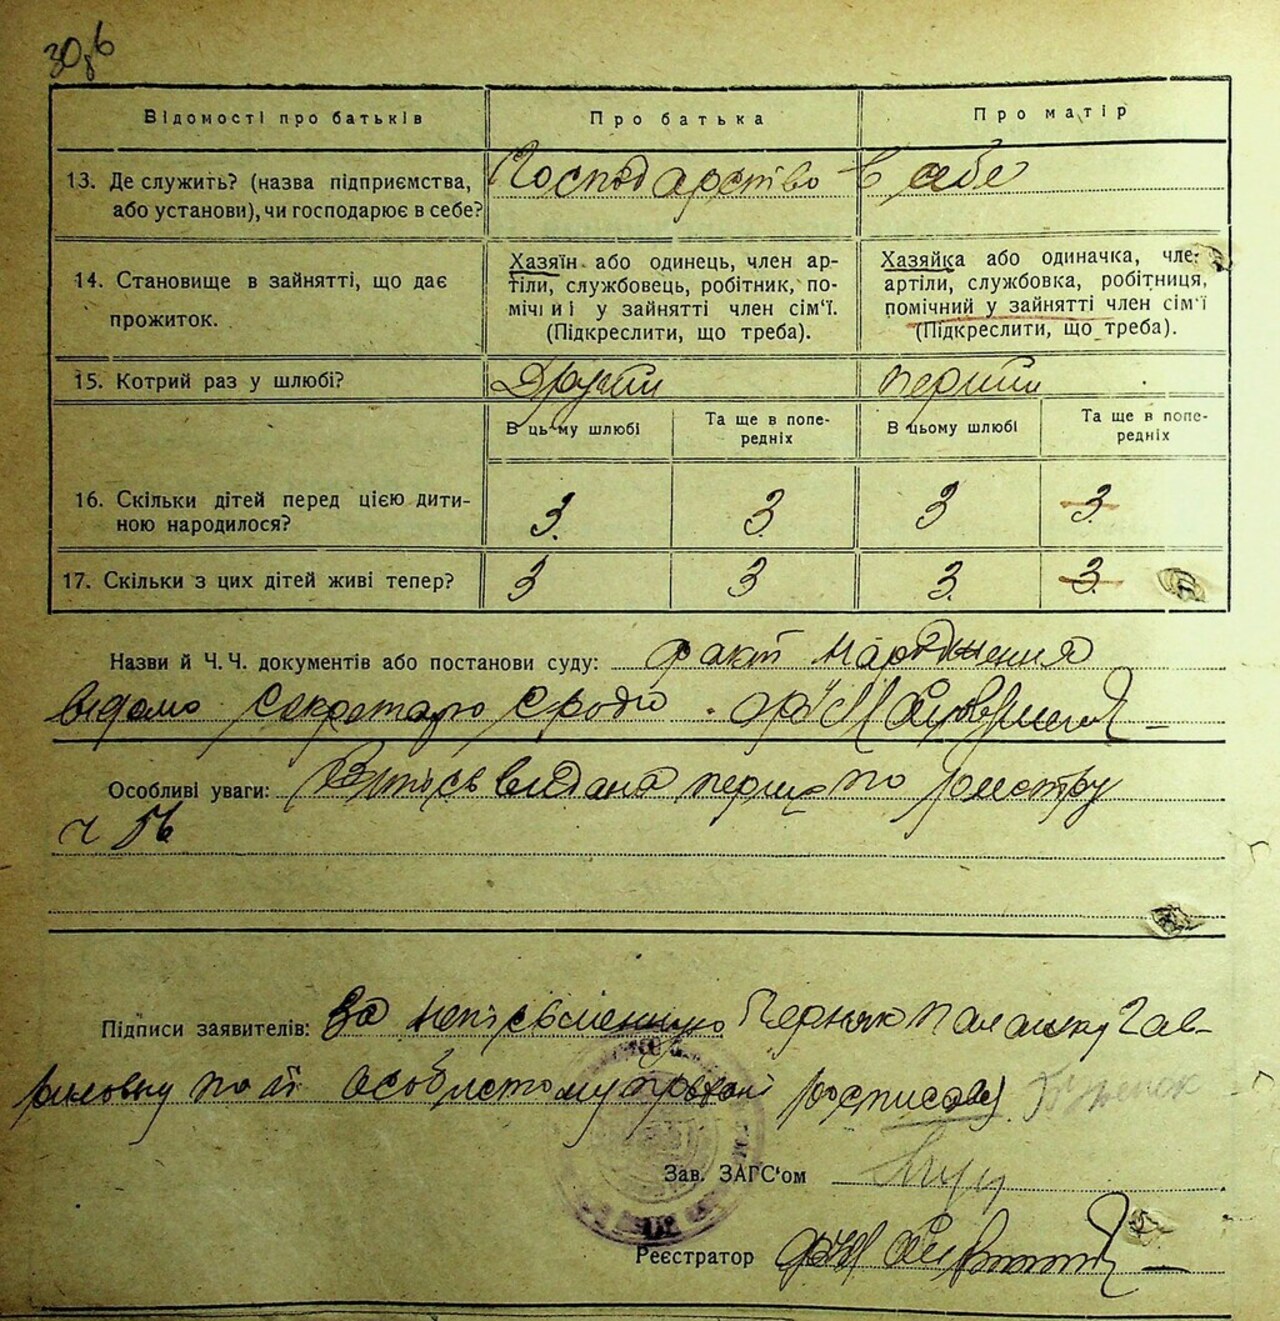 30
Відомості про батьків
Про батька
Про матір
13. Де служить? (назва підприємства, або установи), чи господарює в себе?
Господарство в себе
14. Становище в зайнятті, що дає прожиток.
Хазяїн або одинець, член ар-
тіли, службовець, робітник, по-
мічний у зайнятті член сім'ї.
(Підкреслити, що треба).
Хазяйка або одиначка, член
артіли, службовка, робітниця,
помічний у зайнятті член сім'ї
(Підкреслити, що треба).
15. Котрий раз у шлюбі?
Другий
перший
В цьому шлюбі
Та ще в попе-
редніх
В цьому шлюбі
Та ще в попе-
редніх
16. Скільки дітей перед цією дити-
ною народилося?
3. 3. 3 3.
17. Скільки з цих дітей живі тепер?
3 3 3. 3.
Назви й Ч.Ч. документів або постанови суду: факт народження
відомо секретарю
Особливі уваги: видана перша по реєстру
ч 56
Підписи заявителів: За неписьменну Палажку Гав-
риловну по її особистому проханні росписався
Зав. ЗАГС'ом
Реєстратор